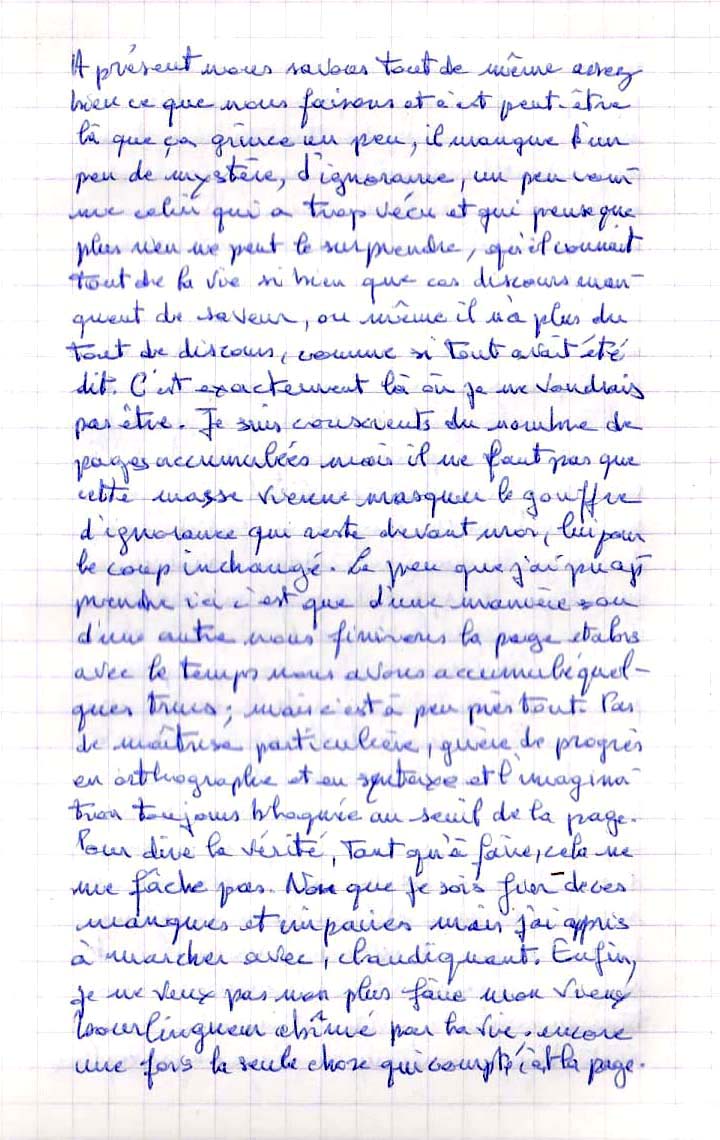 A présent nous savons tout de même assez
bien ce que nous faisons et c'est peut-être
là que ça grince un peu, il manque d'un
peu de mystère, d'ignorance, un peu com-
me celui qui a trop vécu et qui pense que
plus rien ne peut le surprendre, qu'il connait
tout de la vie si bien que ces discours man-
quent de saveur, ou même il n'a plus du
tout de discours, comme si tout avait été
dit. C'est exactement là où je ne voudrais
pas être. Je suis conscients du nombre de
pages accumulées mais il ne faut pas que
cette masse vienne masquer le gouffre
d'ignorance qui reste devant moi, lui pour
le coup inchangé. Le peu que j'ai pu ap-
prendre ici c'est que d'une manière ou
d'une autre nous finirons la page et alors
avec le temps nous avons accumulé quel-
ques trucs; mais c'est à peu près tout. Pas
de maîtrise particulière, guère de progrès
en orthographe et en syntaxe et l'imagina-
tion toujours bloquée au seuil de la page.
Pour dire la vérité, tant qu'à faire, cela ne
me fâche pas. Non que je sois fier de ces
manques et impairs mais j'ai appris
à marcher avec, claudiquant. Enfin,
je ne veux pas non plus faire mon vieux
bourlingueur abîmé par la vie. encore
une fois la seule chose qui compte c'est la page.